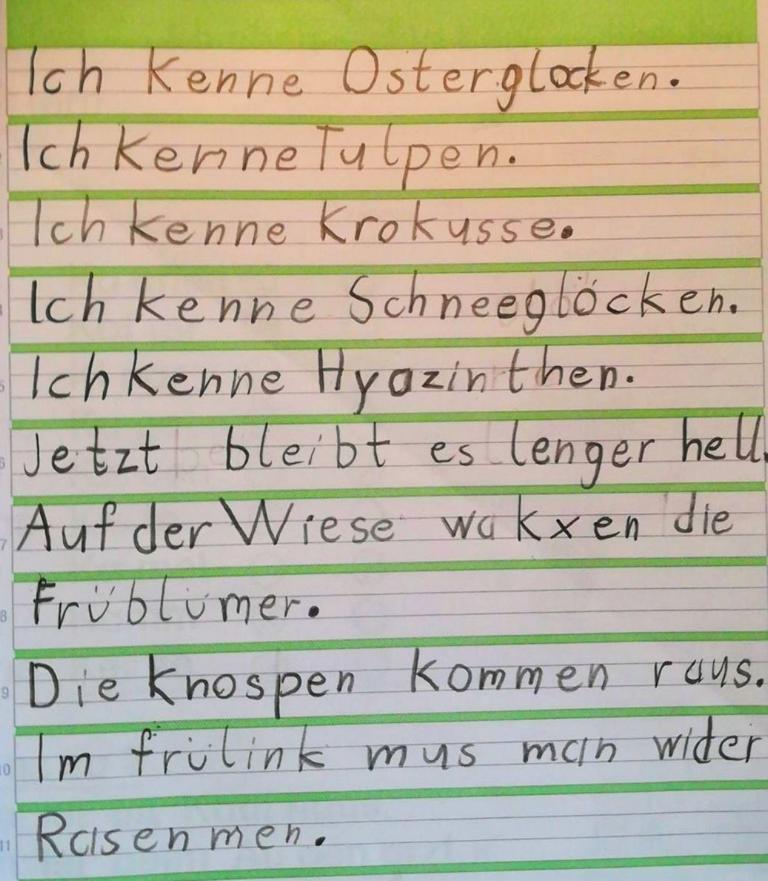 Ich kenne Osterglocken.
Ich kenne Tulpen.
Ich kenne Krokusse.
Ich kenne Schneeglöcken.
Ich kenne Hyazinthen.
Jetzt bleibt es lenger hell.
Auf der Wiese wakxen die
Früblümer.
Die knospen kommen raus.
Im frülink mus man wider
Rasen men.